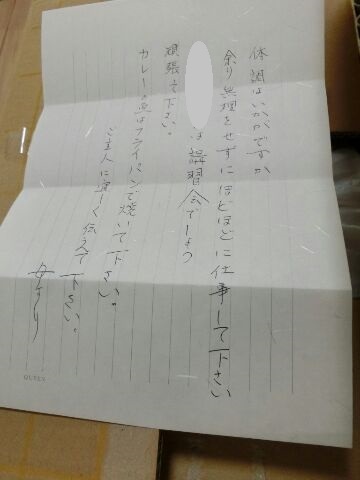 体調はいかがですか
余り無理をせずにほどほどに仕事して下さい
は講習会でしょう
頑張って下さい。
カレー パンはフライパンで焼いて下さい。
ご主人に宜しく伝えて下さい。
母より
QUEEN